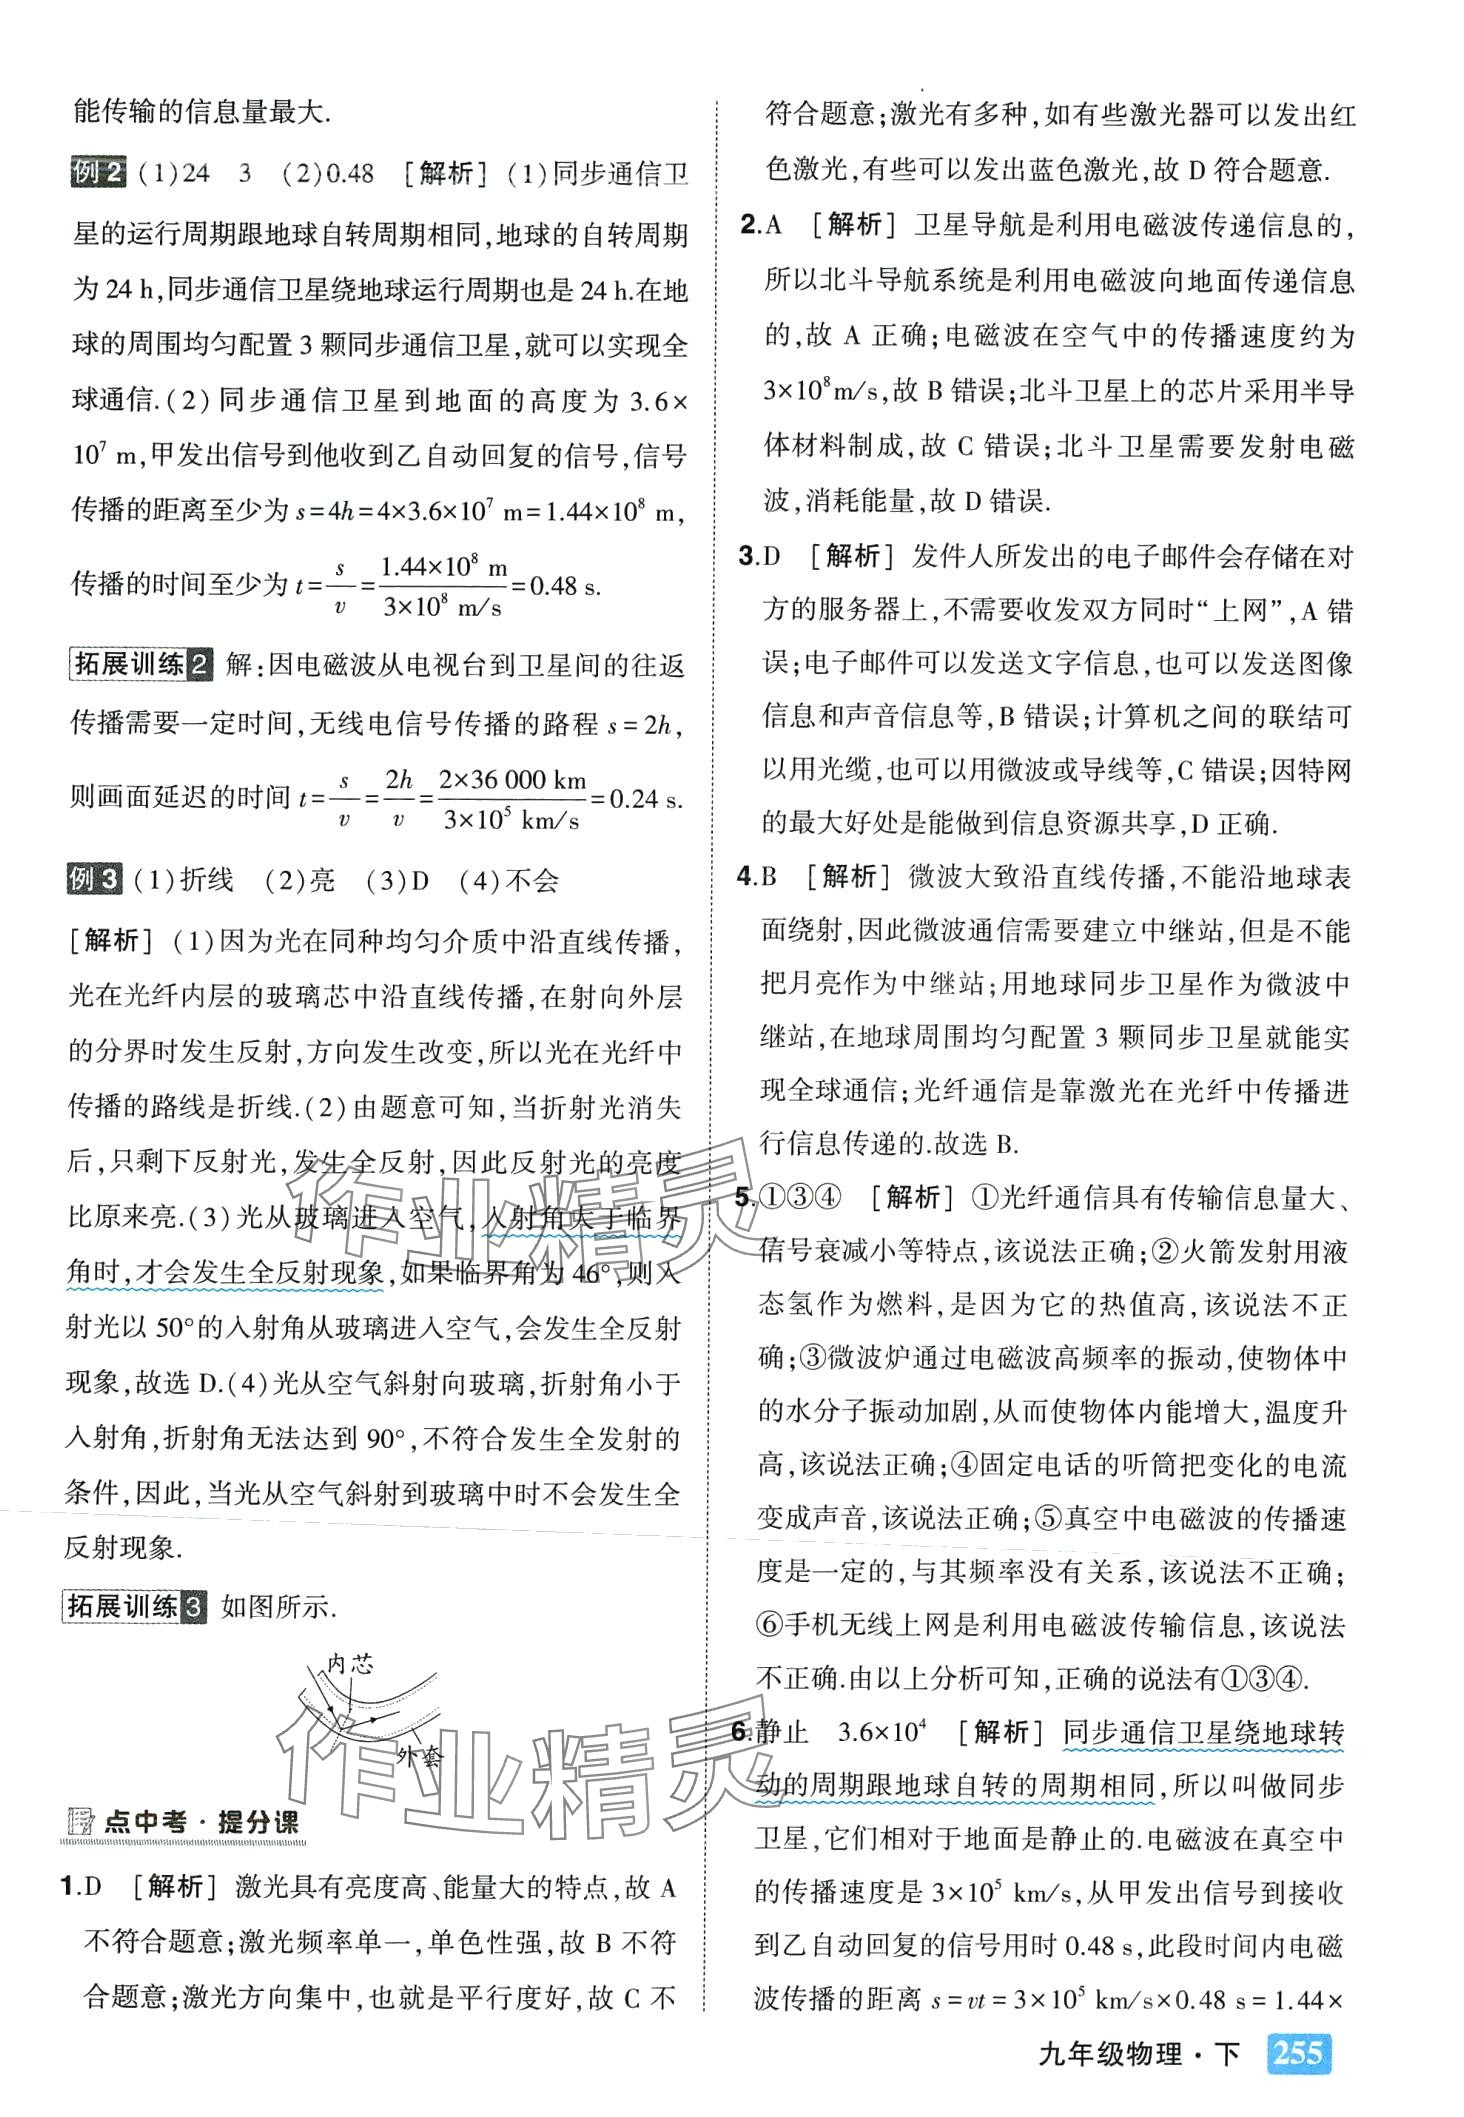 能传输的信息量最大.
例2 (1)24 3 (2)0.48 [解析](1)同步通信卫
星的运行周期跟地球自转周期相同,地球的自转周期
为 24 h,同步通信卫星绕地球运行周期也是 24 h.在地
球的周围均匀配置 3 颗同步通信卫星,就可以实现全
球通信.(2)同步通信卫星到地面的高度为 3.6×
10⁷ m,甲发出信号到他收到乙自动回复的信号,信号
传播的距离至少为 s=4h=4×3.6×10⁷ m=1.44×10⁸ m,
传播的时间至少为 t=s/v=(1.44×10⁸ m)/(3×10⁸ m/s)=0.48 s.
拓展训练2 解:因电磁波从电视台到卫星间的往返
传播需要一定时间,无线电信号传播的路程 s=2h,
则画面延迟的时间 t=s/v=2h/v=(2×36 000 km)/(3×10⁵ km/s)=0.24 s.
例3 (1)折线 (2)亮 (3)D (4)不会
[解析](1)因为光在同种均匀介质中沿直线传播,
光在光纤内层的玻璃芯中沿直线传播,在射向外层
的分界时发生反射,方向发生改变,所以光在光纤中
传播的路线是折线.(2)由题意可知,当折射光消失
后,只剩下反射光,发生全反射,因此反射光的亮度
比原来亮.(3)光从玻璃进入空气,入射角大于临界
角时,才会发生全反射现象,如果临界角为 46°,则入
射光以 50°的入射角从玻璃进入空气,会发生全反射
现象,故选 D.(4)光从空气斜射向玻璃,折射角小于
入射角,折射角无法达到 90°,不符合发生全发射的
条件,因此,当光从空气斜射到玻璃中时不会发生全
反射现象.
拓展训练3 如图所示.
内芯
外套
点中考·提分课
1.D [解析] 激光具有亮度高、能量大的特点,故 A
不符合题意;激光频率单一,单色性强,故 B 不符
合题意;激光方向集中,也就是平行度好,故 C 不
符合题意;激光有多种,如有些激光器可以发出红
色激光,有些可以发出蓝色激光,故 D 符合题意.
2.A [解析] 卫星导航是利用电磁波传递信息的,
所以北斗导航系统是利用电磁波向地面传递信息
的,故 A 正确;电磁波在空气中的传播速度约为
3×10⁸m/s,故 B 错误;北斗卫星上的芯片采用半导
体材料制成,故 C 错误;北斗卫星需要发射电磁
波,消耗能量,故 D 错误.
3.D [解析] 发件人所发出的电子邮件会存储在对
方的服务器上,不需要收发双方同时“上网”,A 错
误;电子邮件可以发送文字信息,也可以发送图像
信息和声音信息等,B 错误;计算机之间的联结可
以用光缆,也可以用微波或导线等,C 错误;因特网
的最大好处是能做到信息资源共享,D 正确.
4.B [解析] 微波大致沿直线传播,不能沿地球表
面绕射,因此微波通信需要建立中继站,但是不能
把月亮作为中继站;用地球同步卫星作为微波中
继站,在地球周围均匀配置 3 颗同步卫星就能实
现全球通信;光纤通信是靠激光在光纤中传播进
行信息传递的.故选 B.
5.①③④ [解析] ①光纤通信具有传输信息量大、
信号衰减小等特点,该说法正确;②火箭发射用液
态氢作为燃料,是因为它的热值高,该说法不正
确;③微波炉通过电磁波高频率的振动,使物体中
的水分子振动加剧,从而使物体内能增大,温度升
高,该说法正确;④固定电话的听筒把变化的电流
变成声音,该说法正确;⑤真空中电磁波的传播速
度是一定的,与其频率没有关系,该说法不正确;
⑥手机无线上网是利用电磁波传输信息,该说法
不正确.由以上分析可知,正确的说法有①③④.
6.静止 3.6×10⁴ [解析] 同步通信卫星绕地球转
动的周期跟地球自转的周期相同,所以叫做同步
卫星,它们相对于地面是静止的.电磁波在真空中
的传播速度是 3×10⁵ km/s,从甲发出信号到接收
到乙自动回复的信号用时 0.48 s,此段时间内电磁
波传播的距离 s=vt=3×10⁵ km/s×0.48 s=1.44×
九年级物理·下 255
作业精灵
作业精灵